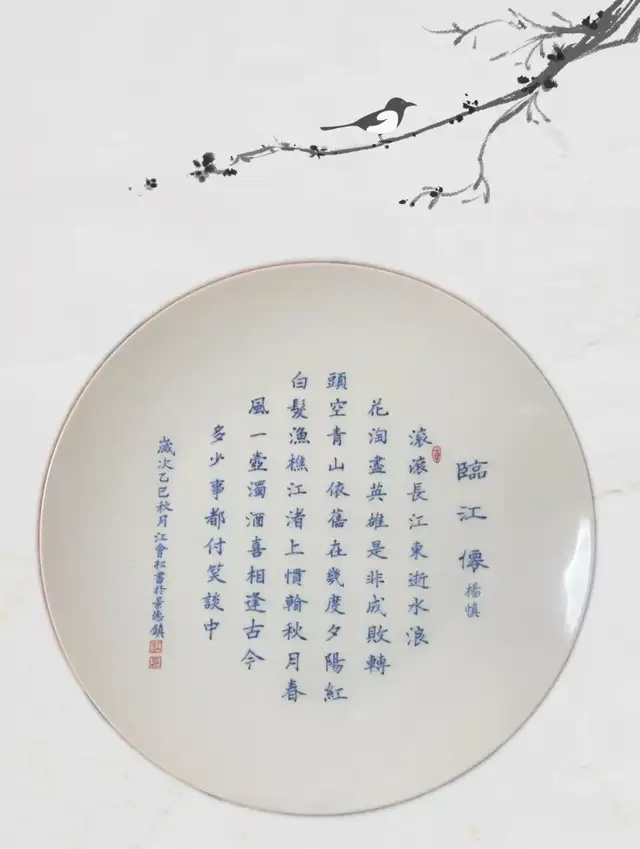 臨江僊
楊慎
滾滾長江東逝水浪
花淘盡英雄是非成敗轉
頭空青山依舊在幾度夕陽紅
白髮漁樵江渚上慣看秋月春
風一壺濁酒喜相逢古今
多少事都付笑談中
歲次乙巳秋月江會松書於景德鎮